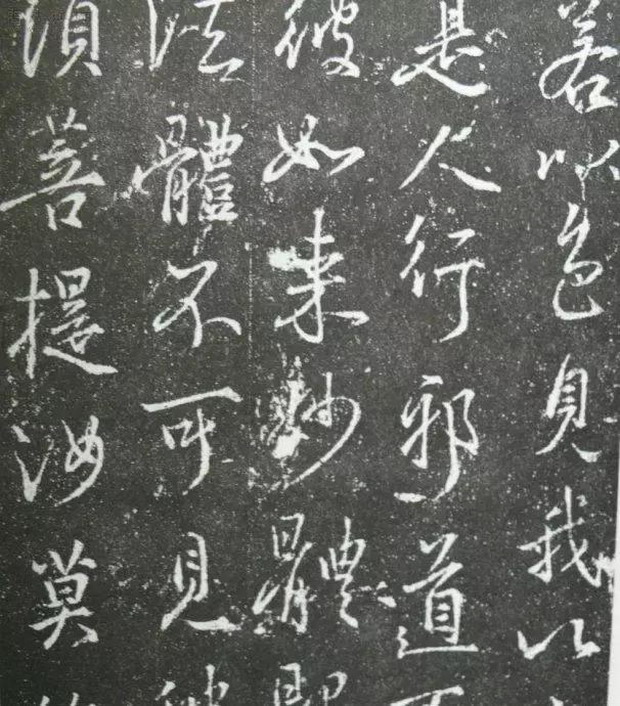 若以色見我以
是人行邪道不
彼如来妙體即
法體不可見彼
須菩提汝莫作